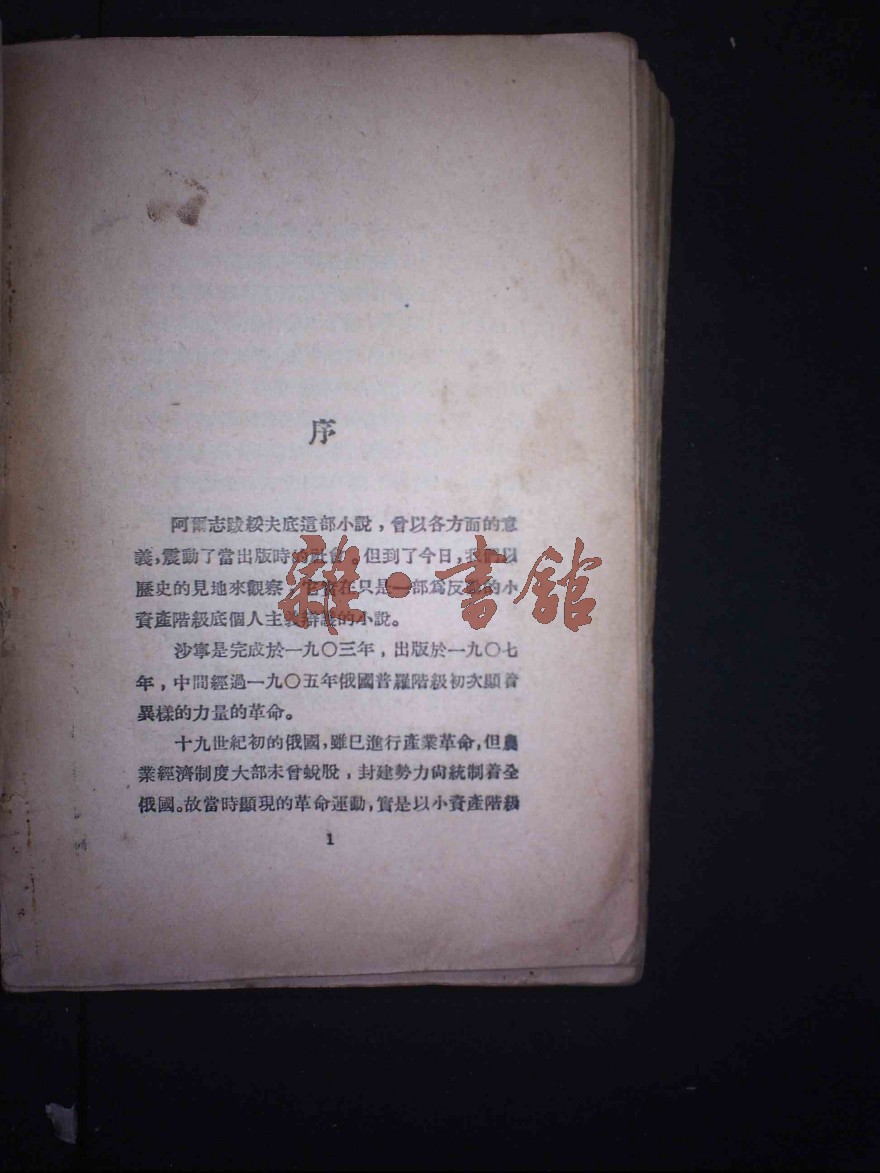 序
阿爾志跋綏夫底這部小說，曾以各方面的意
義，震動了當出版時的社會。但到了今日，我們以
歷史的見地來觀察，它實在只是一部為反動的小
資產階級底個人主義辯護的小說。
沙寧是完成於一九〇三年，出版於一九〇七
年，中間經過一九〇五年俄國普羅階級初次顯着
異樣的力量的革命。
十九世紀初的俄國，雖已進行產業革命，但農
業經濟制度大部未曾蛻脫，封建勢力尙統制着全
俄國。故當時顯現的革命運動，實是以小資產階級
1
雜·書館